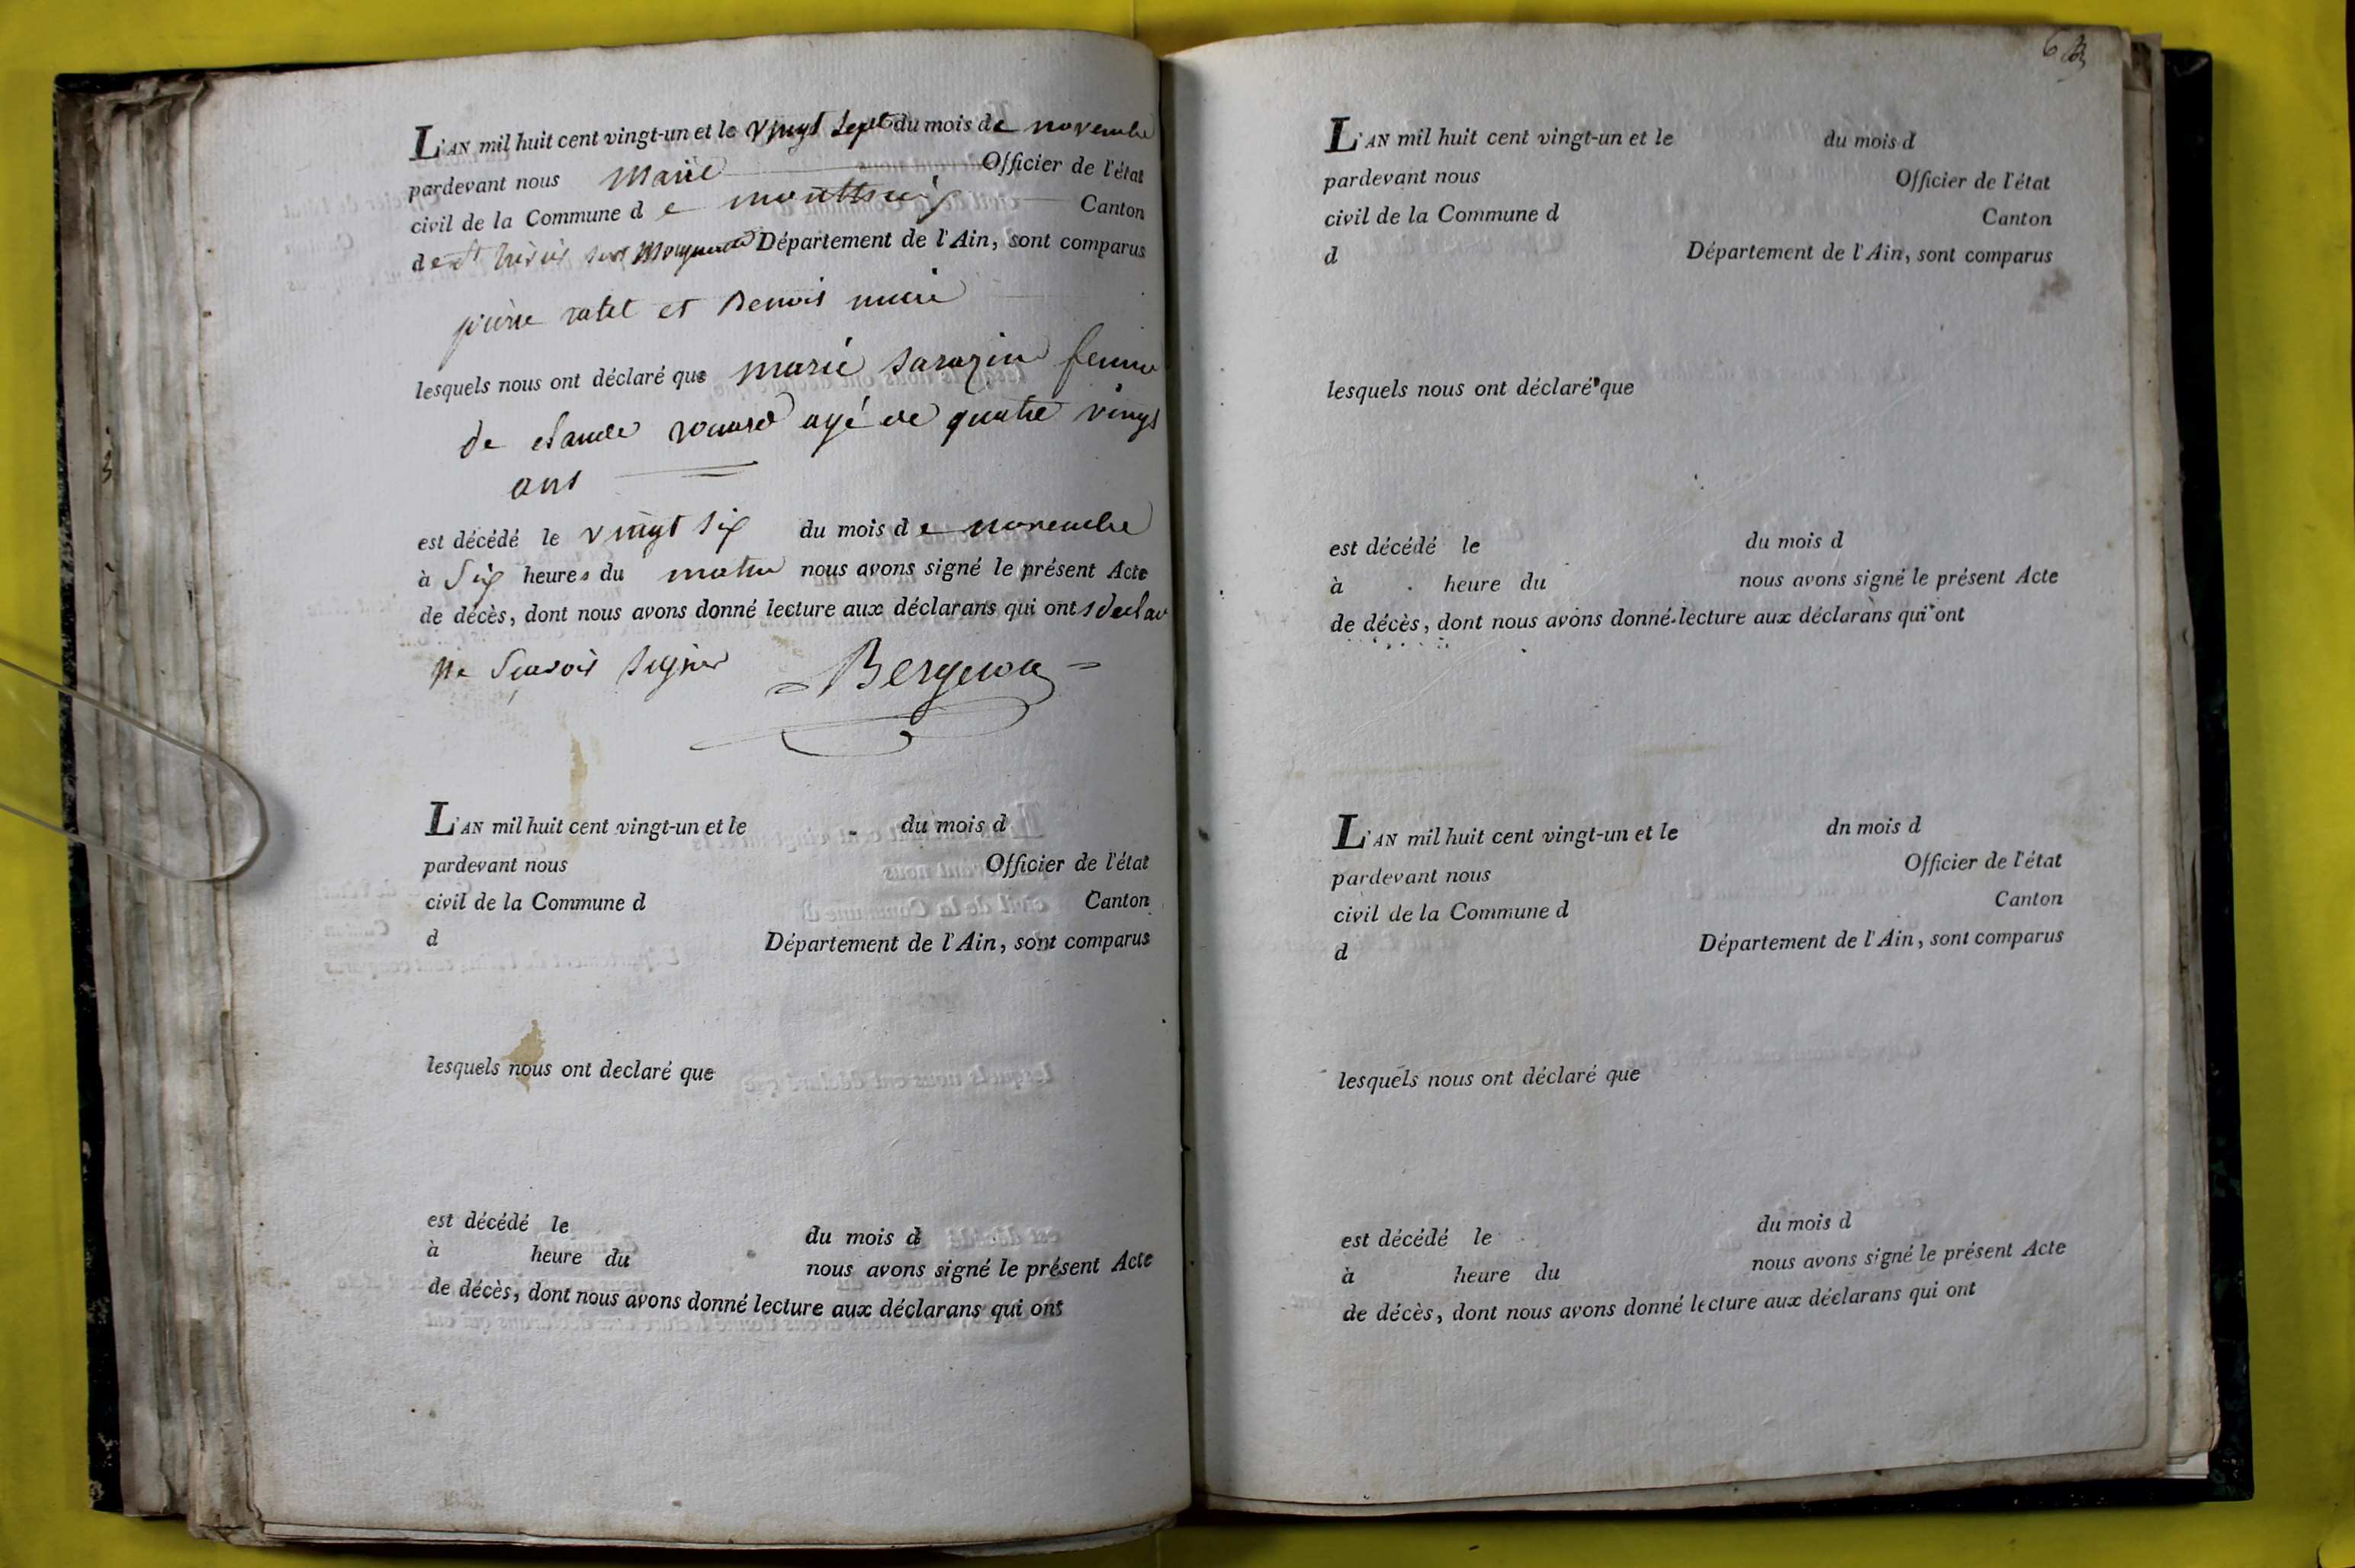 L'AN mil huit cent vingt-un et le vingt sept du mois de novembre
pardevant nous Maire Officier de l'état
civil de la Commune de Canton
de st Département de l'Ain, sont comparus
pierre ratel et Benois
lesquels nous ont déclaré que marie sarazin femme
de claude agé de quatre vingt
ans
est décédé le vingt six du mois de novembre
à Six heures du matin nous avons signé le présent Acte
de décès, dont nous avons donné lecture aux déclarans qui ont
ne signer
L'AN mil huit cent vingt-un et le du mois d
pardevant nous Officier de l'état
civil de la Commune d Canton
d Département de l'Ain, sont comparus
lesquels nous ont declaré que
est décédé le du mois d
à heure du nous avons signé le présent Acte
de décès, dont nous avons donné lecture aux déclarans qui ont
L'AN mil huit cent vingt-un et le du mois d
pardevant nous Officier de l'état
civil de la Commune d Canton
d Département de l'Ain, sont comparus
lesquels nous ont déclaré que
est décédé le du mois d
à heure du nous avons signé le présent Acte
de décès, dont nous avons donné lecture aux déclarans qui ont
L'AN mil huit cent vingt-un et le dn mois d
pardevant nous Officier de l'état
civil de la Commune d Canton
d Département de l'Ain, sont comparus
lesquels nous ont déclaré que
est décédé le du mois d
à heure du nous avons signé le présent Acte
de décès, dont nous avons donné lecture aux déclarans qui ont